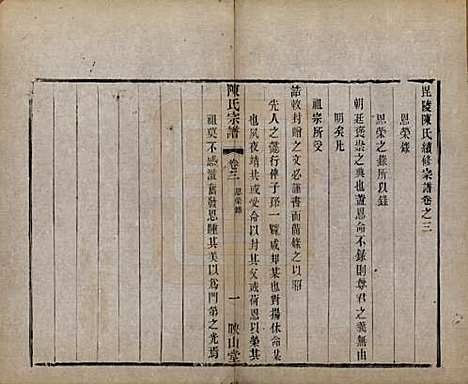 毘陵陳氏續修宗譜卷之三
恩榮錄
恩榮之錄所以錄
朝廷褒崇之典也蓋恩命不錄則尊君之義無由
明矣凡
祖宗所受
誥敕封贈之文必謹書而備錄之以昭
先人之懿行俾子孫一覽咸知某也對揚休命某
也夙夜靖共某也受命以封其父或荷恩以榮其
祖莫不感溫奮發思踵其美以爲門第之光焉
陳氏宗譜
卷三
恩榮錄
一
映山堂